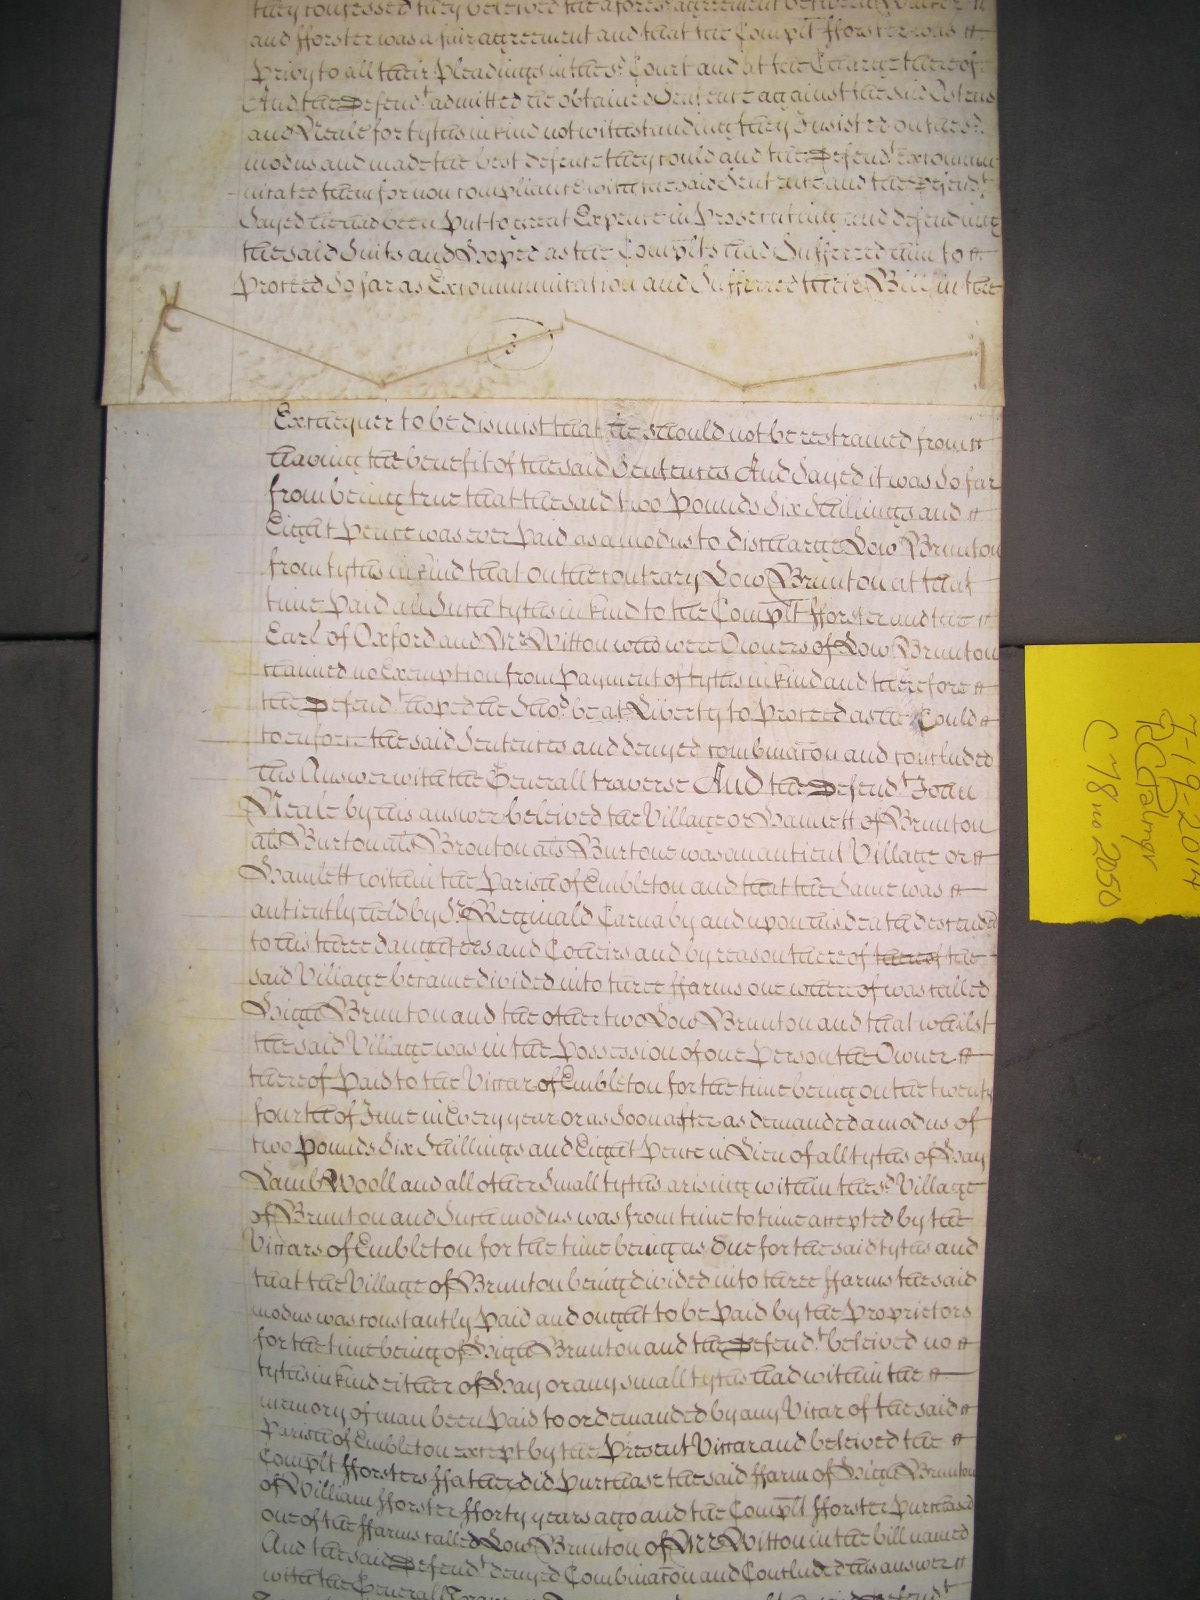 they confessed they beleived the afores.d agreement between
and fforster was a fair agreement and that the Compl.t fforster was
Privy to all their Pleadings in the s.d Court and at the Charge thereof
And the Defend.t admitted he obtained Sentence against the said
and Neale for tyths in kind notwithstanding they Insisted on the s.d
modus and made the best defence they could and the Defend.t Excommu
nicated them for non compliance with the said Sentence and the Defend.t
Sayed he had been Put to great Expence in Prosecuting and defending
the said Suits and Hoped as the Compl.ts had Suffered him to
Proceed So far as Excommunication and Sufferred their Bill in the
Exchequer to be dismist that he should not be restrained from
having the benefit of the said Sentences And Sayed it was So far
from being true that the said two Pounds Six Shillings and
Eight Pence was ever Paid as a modus to discharge Low Brunton
from tyths in kind that on the contrary Low Brunton at that
time Paid all Such tyths in kind to the Compl.t fforster and the
Earl of Oxford and Mr Witton who were Owners of Low Brunton
claimed no Exemption from Payment of tyths in kind and therefore
the Defend.t hoped he Sho.d be at Liberty to Proceed as he Could
to enforce the said Sentences and denyed combinacon and concluded
his Answer with the Generall traverse And the Defend.t John
Neale by his answer beleived the Village or Hamlett of Brunton
als Burton als Bronton als Burtone was an antient Village or
Hamlett within the Parish of Embleton and that the Same was
antiently held by S.r Reginald Carnaby and upon his death descended
to his three daughters and Coheirs and by reason thereof thereof the
said Village became divided into three ffarms one whereof was called
High Brunton and the other two Low Brunton and that whilst
the said Village was in the Possession of one Person the Owner
thereof Paid to the Viccar of Embleton for the time being on the twenty
fourth of June in Every year or as Soon after as demanded a modus of
two Pounds Six Shillings and Eight Pence in Lieu of all tyths of Hay
Lamb Wooll and all other Small tyths arising within the s.d Village
of Brunton and Such modus was from time to time accepted by the
Viccars of Embleton for the time being as Due for the said tyths and
that the Village of Brunton being divided into three ffarms the said
modus was constantly Paid and ought to be Paid by the Proprietors
for the time being of High Brunton and the Defend.t beleived no
tyths in kind either of Hay or any small tyths had within the
memory of man been Paid to or demanded by any Vicar of the said
Parish of Embleton except by the Present Viccar and beleived the
Compl.t fforsters ffather did Purchase the said ffarm of High Brunton
of William fforster fforty years ago and the Compl.t fforster Purchased
one of the ffarms called Low Brunton of Mr Witton in the bill named
And the said Defend.t denyed Combinacon and Concluded his answer
with the Generall
7-19-2014
RCPalmer
C 78 no 2050